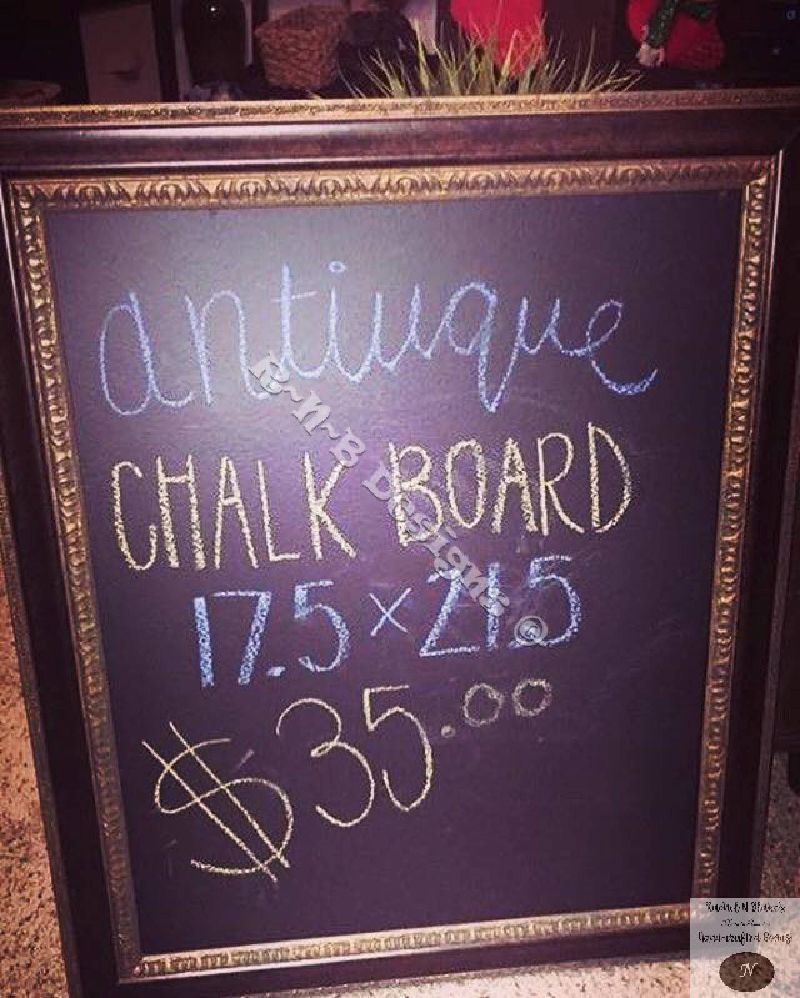 antiuque
CHALK BOARD
17.5 × 21.5
$35.00
R~N~B Designs ©
N